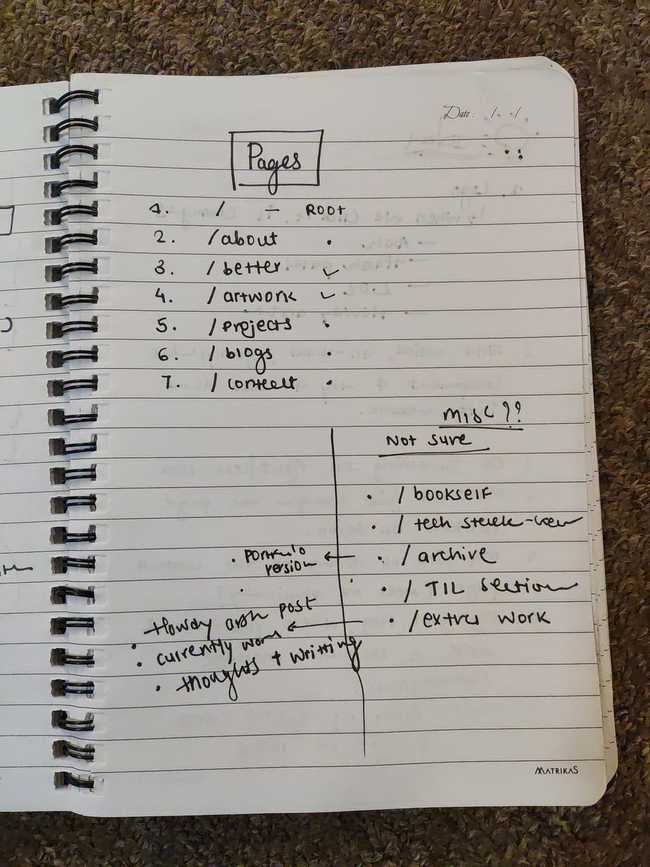 Date: / /
Pages
1. / — ROOT
2. /about
3. /better ✓
4. /artwork ✓
5. /projects
6. /blogs
7. /contact
Misc ??
Not sure
• /bookself
• /tech
• portfolio version ← • /archive
• /TIL section
• /extra work
post
• currently work
• thoughts + writting
MATRIKAS